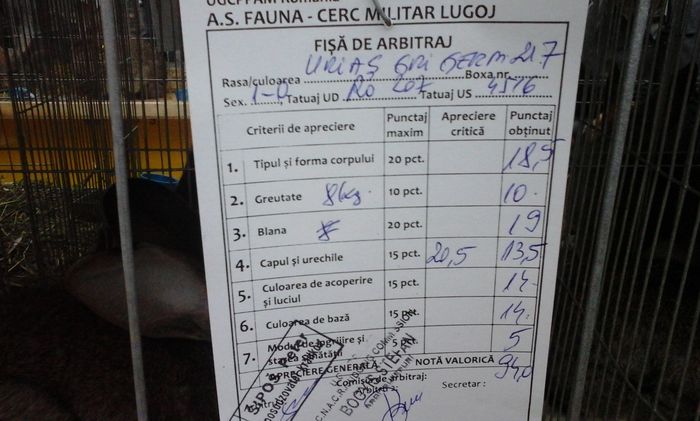 UGCPPAM România
A.S. FAUNA - CERC MILITAR LUGOJ
FIȘĂ DE ARBITRAJ
Rasa/culoarea URIAȘ GRI GERM Boxa nr. 217
Sex. 1-0 Tatuaj UD RO 207 Tatuaj US 4516
Criterii de apreciere Punctaj maxim Apreciere critică Punctaj obținut
1. Tipul și forma corpului 20 pct. 18,5
2. Greutate 8kg. 10 pct. 10
3. Blana 20 pct. 19
4. Capul și urechile 15 pct. 20,5 13,5
5. Culoarea de acoperire și luciul 15 pct. 14
6. Culoarea de bază 15 pct. 14
7. Modul de îngrijire și starea sănătății 5 pct. 5
APRECIERE GENERALĂ NOTĂ VALORICĂ 94,0
Comisia de arbitraj: Secretar :
Arbitru 2:
SIPOS Peter
C.N.A.C.R.
BOGDAN STEFAN